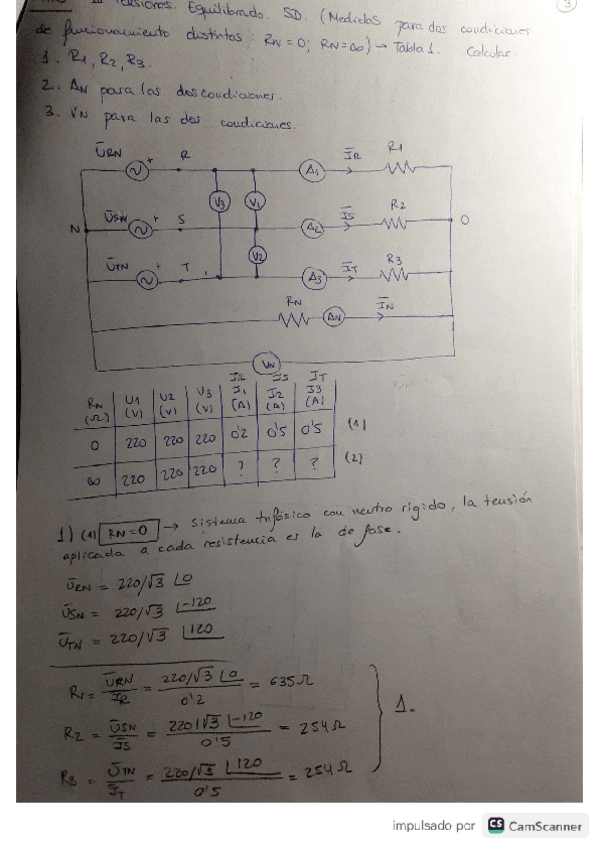 3
Tensiones. Equilibrado. SD. (Medidas para dos condiciones
de funcionamiento distintas: RN=0; RN=∞) → Tabla 1. Calcular
1. R1, R2, R3.
2. AN para las dos condiciones.
3. VN para las dos condiciones.
ŪRN + R A1 ĪR R1
V3 V1
N ŪSN + S A2 ĪS R2 O
V2
ŪTN + T A3 ĪT R3
RN AN ĪN
VN
IR IS IT
RN (Ω) U1 (V) U2 (V) U3 (V) I1 (A) I2 (A) I3 (A)
0 220 220 220 0'2 0'5 0'5 (1)
∞ 220 220 220 ? ? ? (2)
1) (1) RN=0 → Sistema trifásico con neutro rígido, la tensión
aplicada a cada resistencia es la de fase.
ŪRN = 220/√3 |0
ŪSN = 220/√3 |-120
ŪTN = 220/√3 |120
R1 = ŪRN/ĪR = 220/√3 |0 / 0'2 = 635Ω
R2 = ŪSN/ĪS = 220/√3 |-120 / 0'5 = 254Ω
R3 = ŪTN/ĪT = 220/√3 |120 / 0'5 = 254Ω
1.
impulsado por CS CamScanner